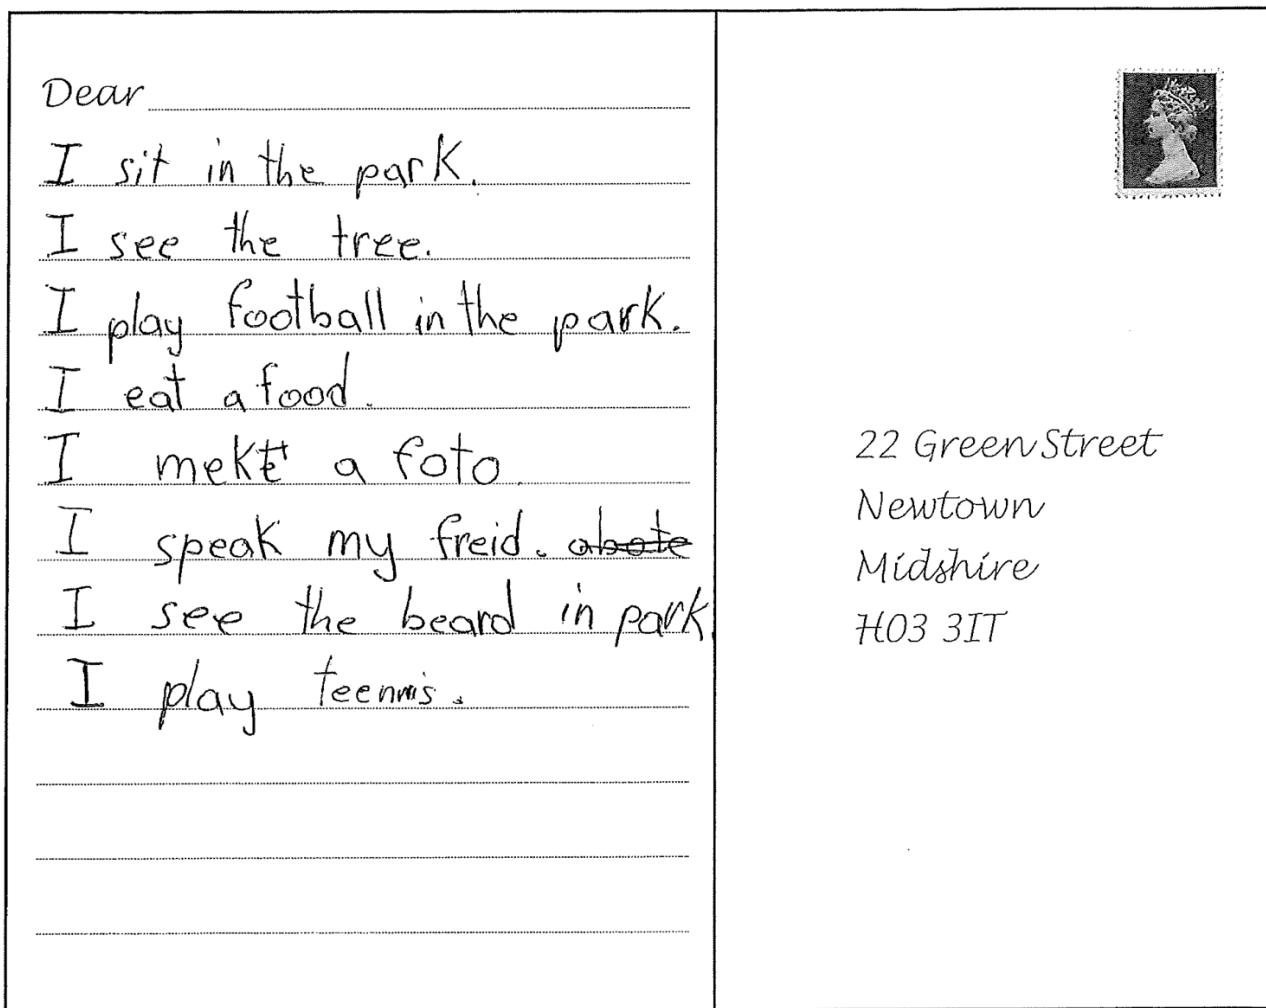 Dear
I sit in the park.
I see the tree.
I play football in the park.
I eat a food.
I a foto.
I speak my freid. abote
I see the beard in park.
I play teennis.
22 Green Street
Newtown
Midshire
H03 3IT